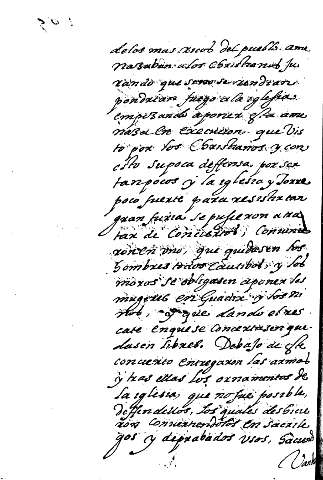 delos mas ricos del pueblo. ame
nazaban a los Christianos ju
rando que sino se rendian
pondrian fuego a la iglesia
empezando aponer esta ame
naza en execucion. que Vis
to por los Christianos, y con
esto su poca deffensa, por ser
tan pocos y la iglesia y Torre
poco fuerte para resistir tan
gran furia se pusieron a tra
tar de Conciertos; Convinie
ron en uno, que quedasen los
hombres todos Cautibos, y los
moros se obligasen a poner las
mugeres en Guadix y los ni
ños, y que dando el res
cate en que se Concertasen que
dasen libres. Debajo de este
concierto entregaron las armas
y tras ellas los ornamentos de
la iglesia, que no fue posible,
deffendellos, los quales deshicie
ron convirtiendolos en sacrile
gos y depravados Usos, haciend